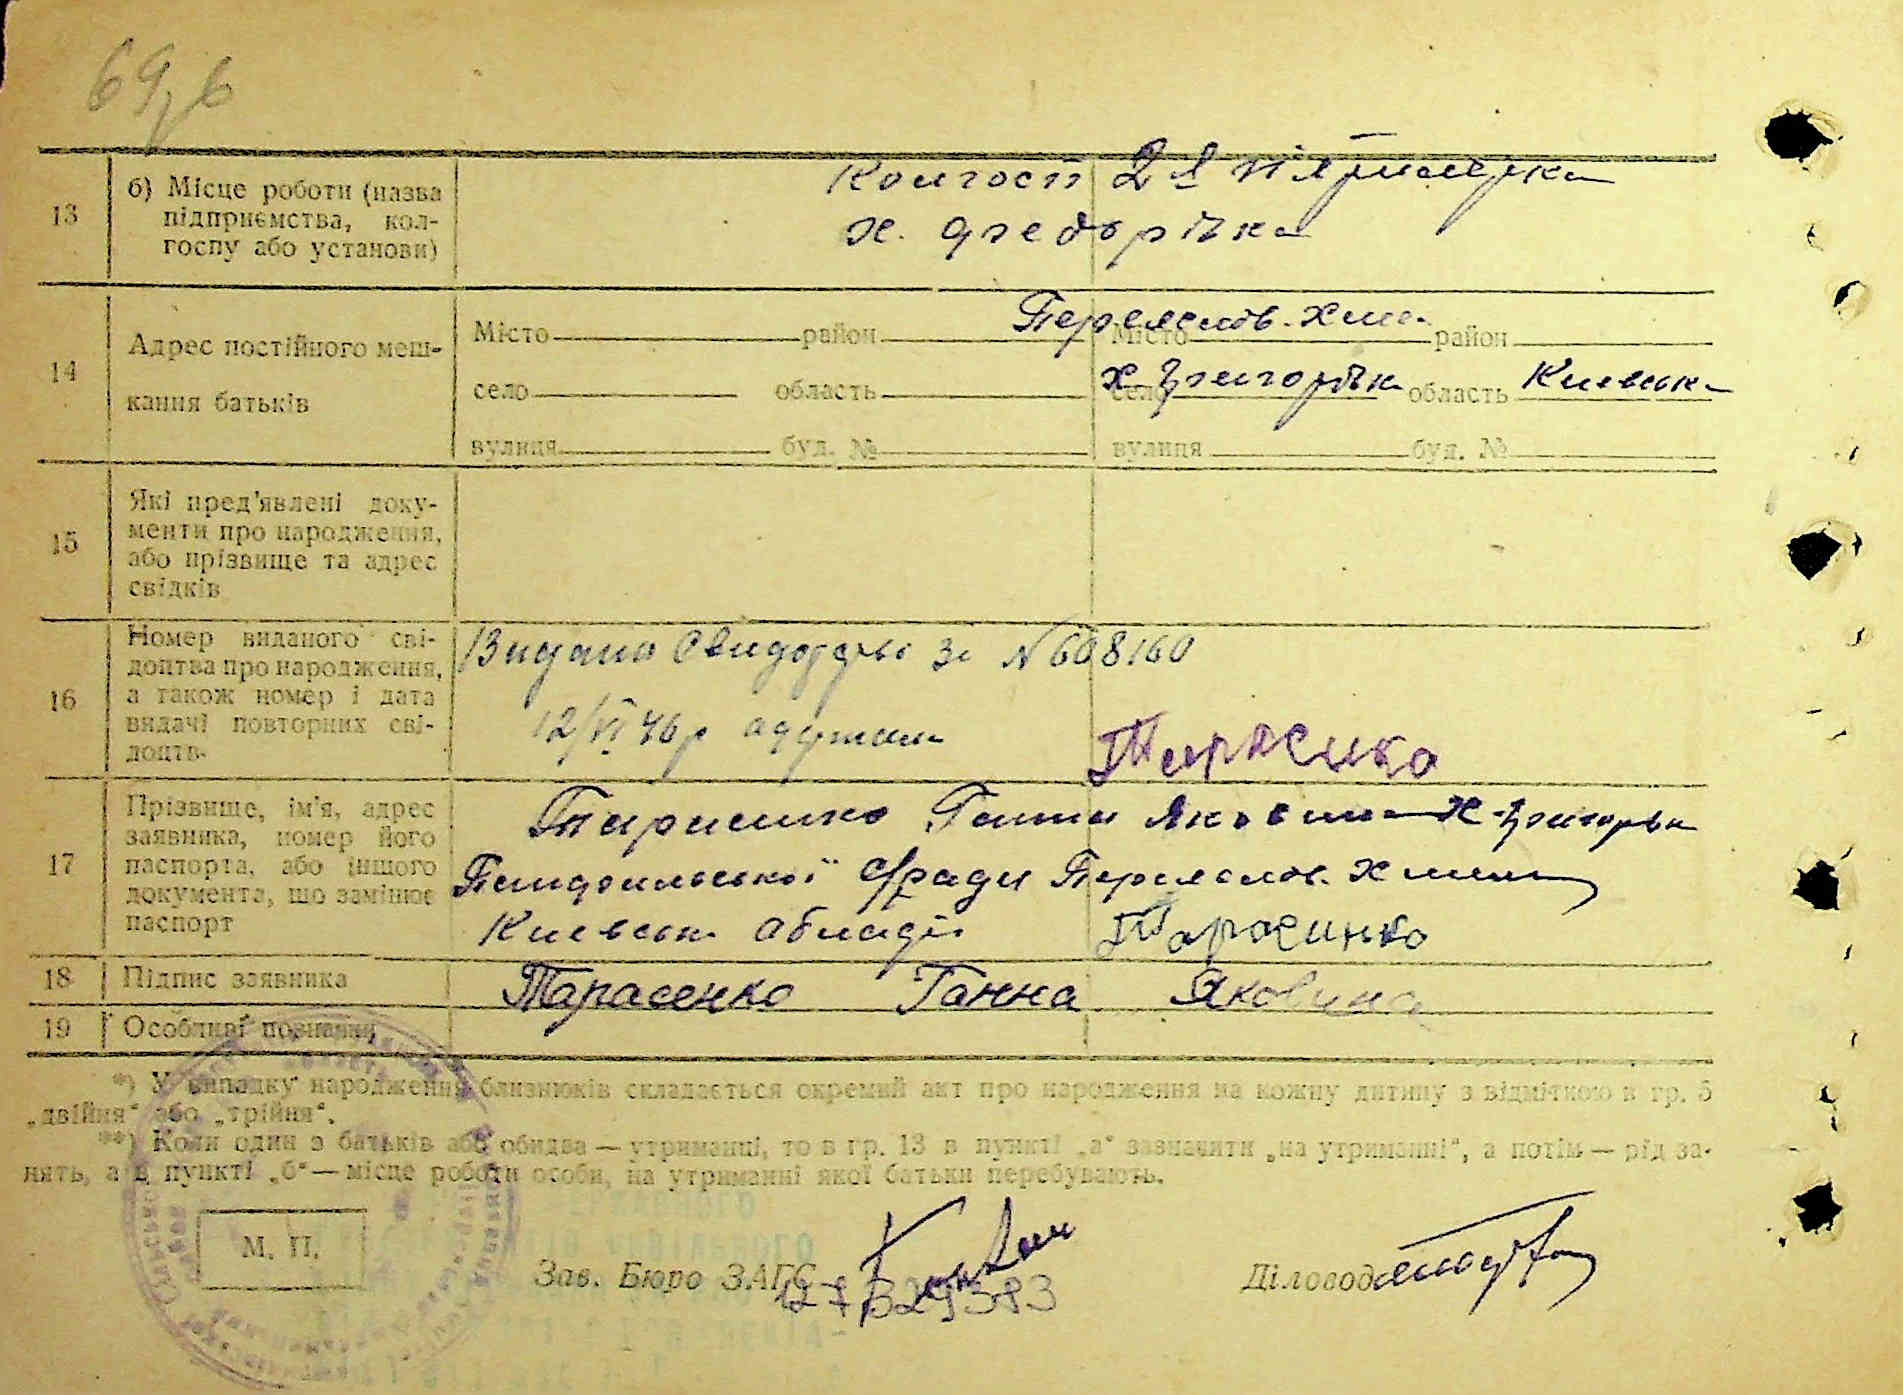 69,6
13
б) Місце роботи (назва
підприємства, кол-
госпу або установи)
Колгосп 2а пятирічка
14
Адрес постійного меш-
кання батьків
Місто район
село область
вулиця буд. №
Переяслов. Хмел.
Місто район
село область Киевська
вулиця буд. №
15
Які пред'явлені доку-
менти про народження,
або прізвище та адрес
свідків
16
Номер виданого сві-
доцтва про народження,
а також номер і дата
видачі повторних сві-
доцтв.
Видано Свидоцтво за №608160
12/VI 46р
Тарасенко
17
Прізвище, ім'я, адрес
заявника, номер його
паспорта, або іншого
документа, що замінює
паспорт
Тарасенко Ганна Яковина
Переяслов. Хмельн
Киевськ области
Тарасинко
18
Підпис заявника
Тарасенко Ганна Яковина
19
Особливі позначки
*) У випадку народження близнюків складається окремий акт про народження на кожну дитину з відміткою в гр. 5
„двійня“ або „трійня“.
**) Коли один з батьків або обидва — утриманці, то в гр. 13 в пункті „а“ зазначити „на утриманні“, а потім — рід за-
нять, а в пункті „б“ — місце роботи особи, на утриманні якої батьки перебувають.
М. П.
Зав. Бюро ЗАГС
Діловод